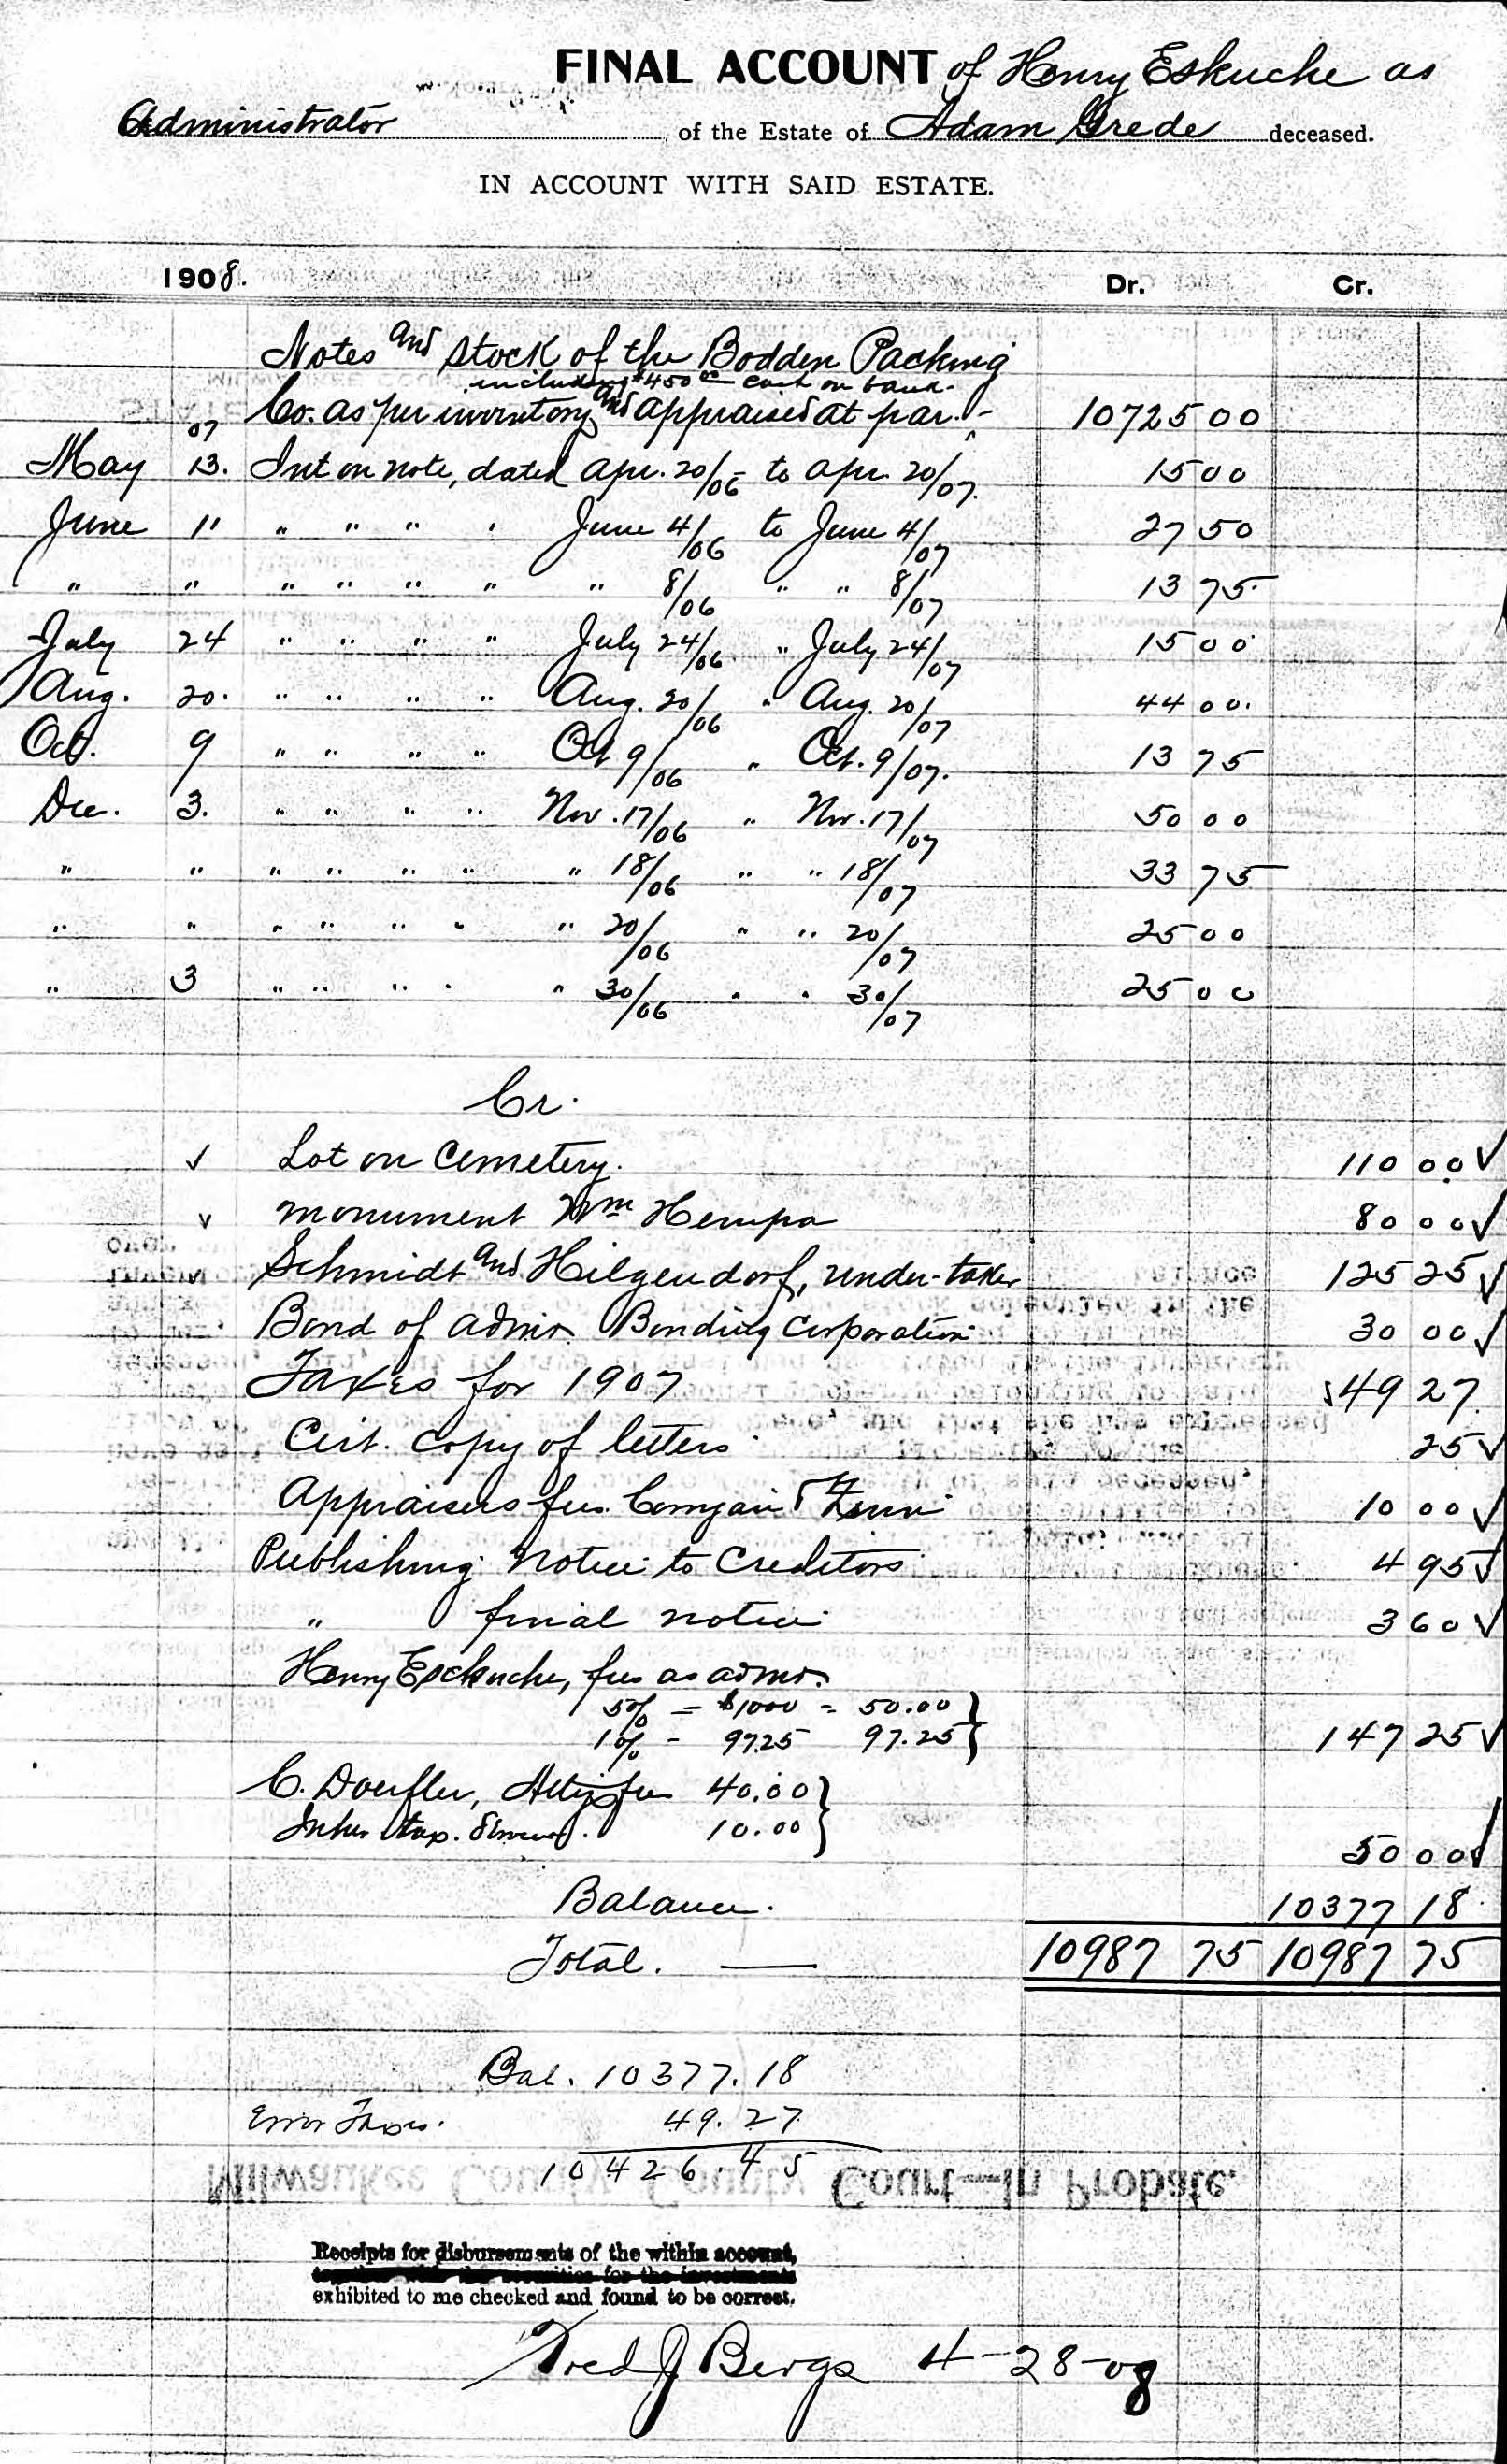 FINAL ACCOUNT of Henry Eskuche as
Administrator, of the Estate of Adam Grede deceased.
IN ACCOUNT WITH SAID ESTATE.
1908. Dr. Cr.
Notes and stock of the Bodden Packing
including $450 00 cash on hand.
Co. as per inventory and appraised at par. - 10725 00
07
May 13. Int on note, dated Apr. 20/06 to Apr. 20/07. 15 00
June 11 " " " " June 4/06 to June 4/07 27 50
" " " " " " " 8/06 " " 8/07 13 75
July 24 " " " " July 24/06 " July 24/07 15 00
Aug. 20. " " " " Aug. 20/06 " Aug. 20/07 44 00.
Oct. 9 " " " " Oct 9/06 " Oct. 9/07. 13 75
Dec. 3. " " " " Nov. 17/06 " Nov. 17/07 50 00
" " " " " " " 18/06 " " 18/07 33 75
" " " " " " " 20/06 " " 20/07 25 00
" 3 " " " " " 30/06 " " 30/07 25 00
Cr.
✓ Lot on Cemetery. 110 00 ✓
✓ Monument Wm Hempa 80 00 ✓
Schmidt and Hilgendorf, under-taker 125 25 ✓
Bond of admr. Bonding Corporation 30 00 ✓
Taxes for 1907 ✓ 49 27.
Cert. copy of letters 25 ✓
Appraisers fees 10 00 ✓
Publishing notice to Creditors 4 95 ✓
" final notice 3 60 ✓
Henry Eschuche, fees as admr.
5% - $1000 - 50.00 }
1% - 9725 97.25 } 147 25 ✓
C. Doerfler, Attys fees 40.00 }
Inher. tax. 10.00 } 50 00 ✓
Balance. 10377 18
Total. — 10987 75 10987 75
Bal. 10377.18
Error Taxes. 49.27
10426.45
Milwaukee County County Court—In Probate.
Receipts for disbursements of the within account,
together with the securities for the investments
exhibited to me checked and found to be correct.
Fred J Bergs 4-28-08